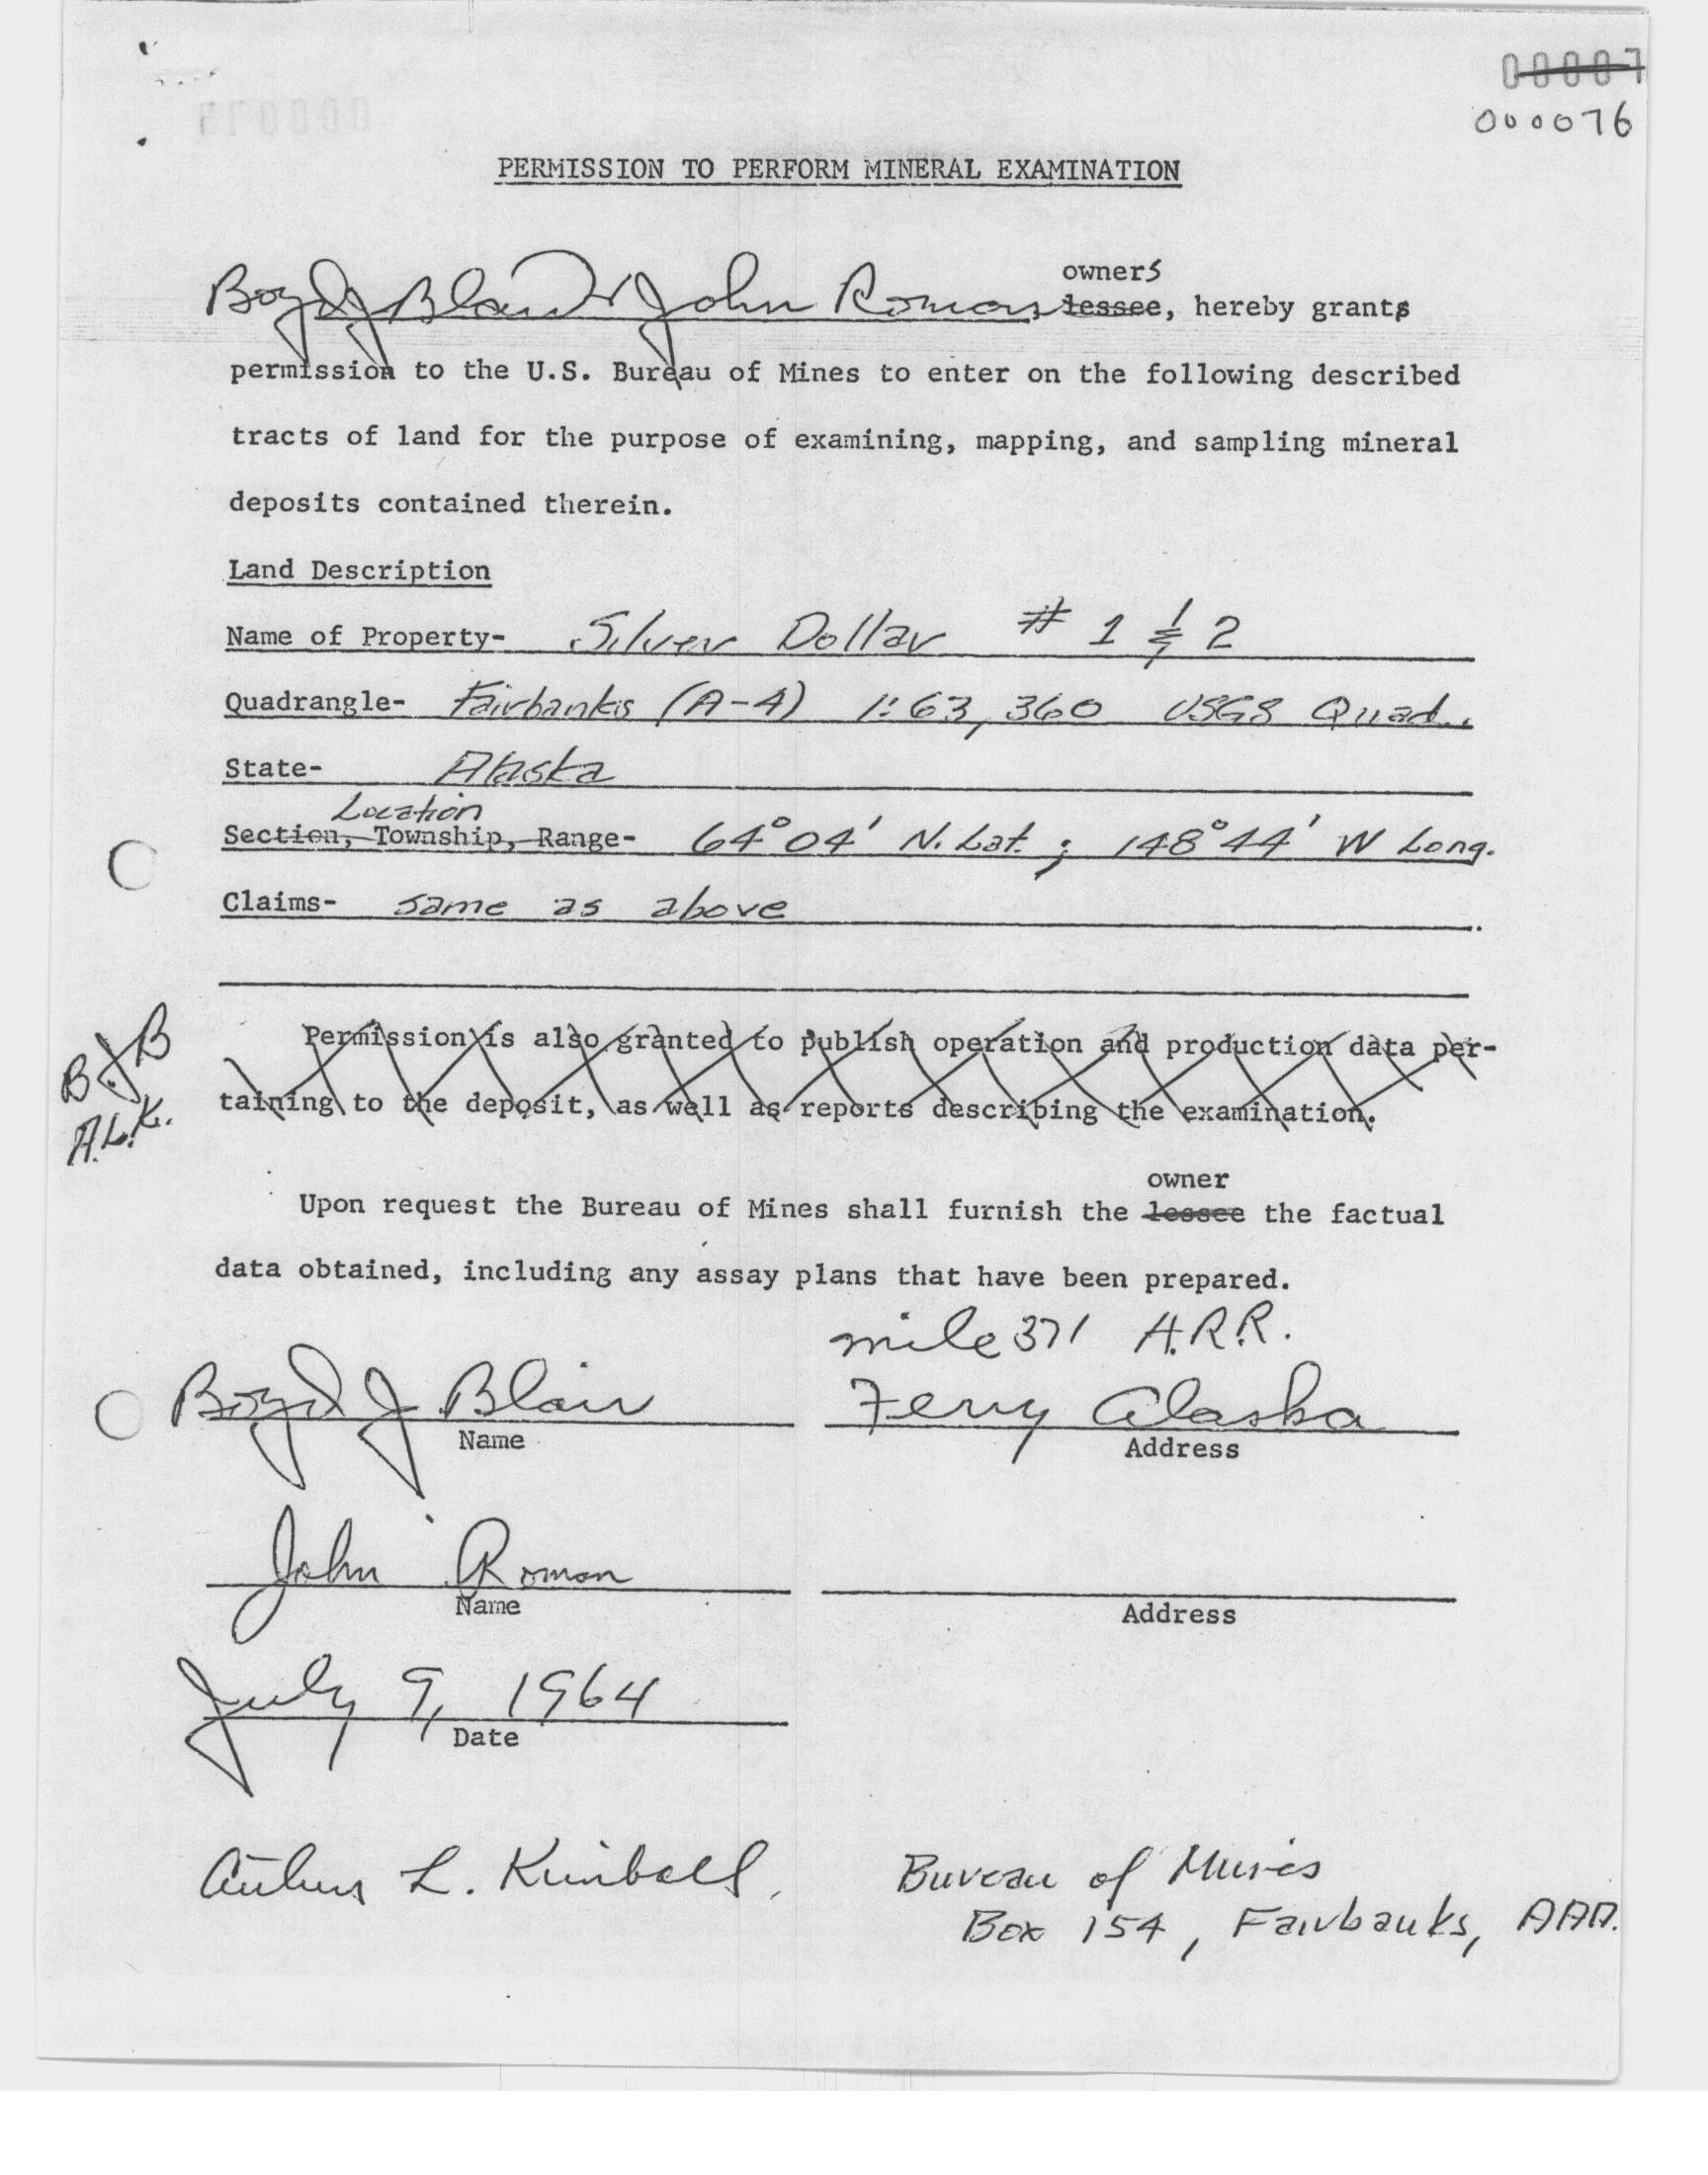 00007
000076
PERMISSION TO PERFORM MINERAL EXAMINATION
owners
Boyd J Blair & John Roman, lessee, hereby grants
permission to the U.S. Bureau of Mines to enter on the following described
tracts of land for the purpose of examining, mapping, and sampling mineral
deposits contained therein.
Land Description
Name of Property- Silver Dollar # 1 & 2
Quadrangle- Fairbanks (A-4) 1:63,360 USGS Quad.
State- Alaska
Location
Section, Township, Range- 64° 04' N. Lat. ; 148° 44' W Long.
Claims- same as above
Permission is also granted to publish operation and production data per-
taining to the deposit, as well as reports describing the examination.
BJB
A.L.K.
owner
Upon request the Bureau of Mines shall furnish the lessee the factual
data obtained, including any assay plans that have been prepared.
mile 371 A.R.R.
Boyd J Blair Ferry Alaska
Name Address
John Roman
Name Address
July 9, 1964
Date
Arthur L. Kimball, Bureau of Mines
Box 154, Fairbanks,